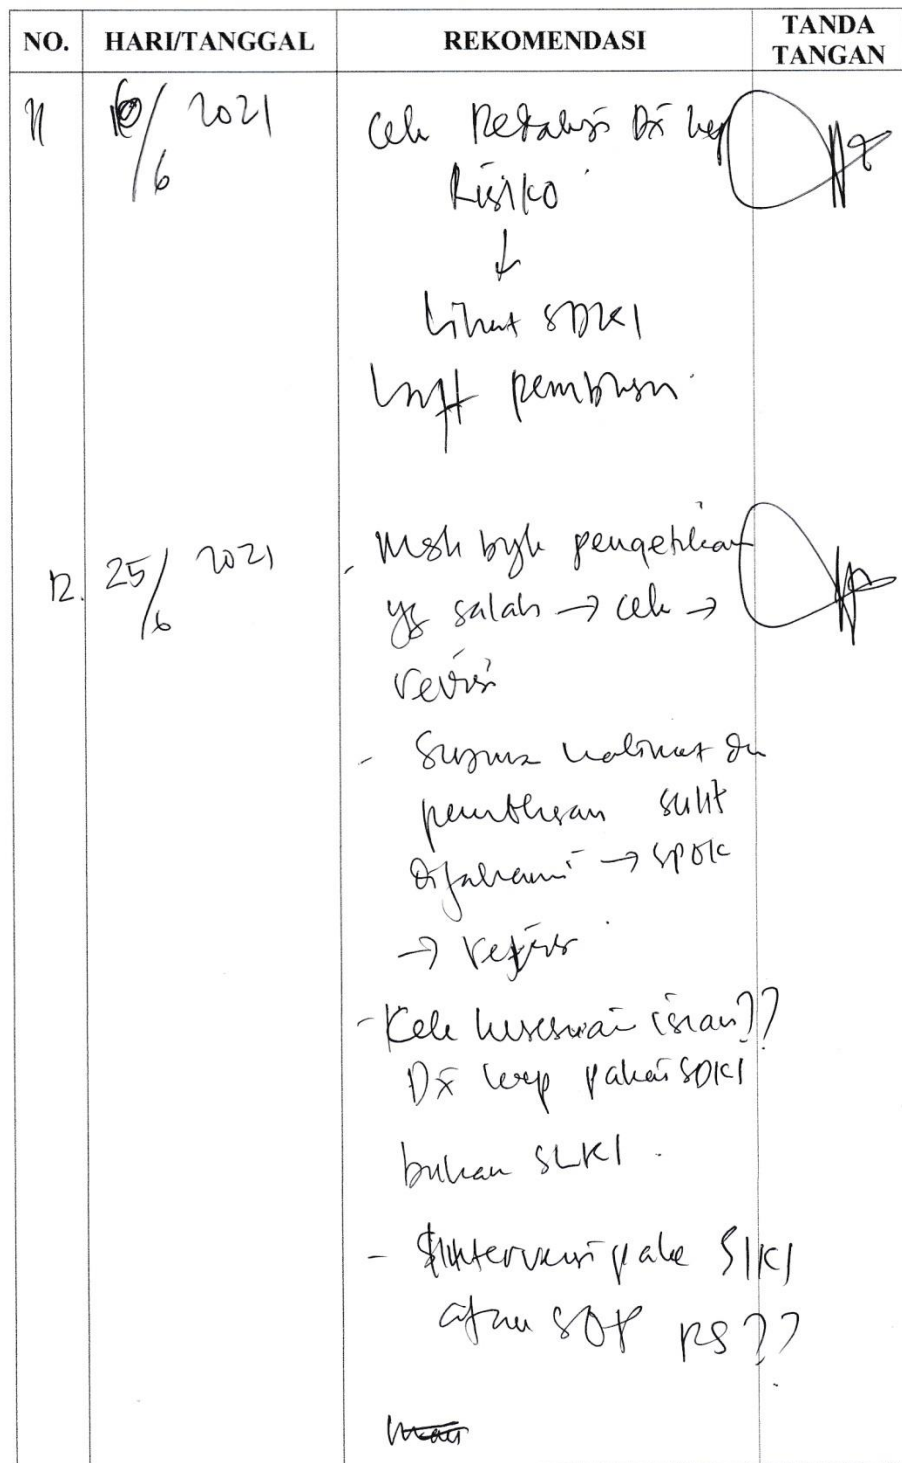 NO. HARI/TANGGAL REKOMENDASI TANDA TANGAN
11 /6 2021 Cek Redaksi Dx kep
Risiko
↓
Lihat SDKI
pembhsn
12. 25/6 2021 - Msh byk pengetikan
yg salah → cek →
revisi
- Susunan kalimat dn
pembhsan sulit
difahami → SPOK
→ revisi
- Cek kesesuaian isian??
Dx kep pakai SDKI
bukan SLKI.
- Intervensi pake SIKI
atau SOP RS??